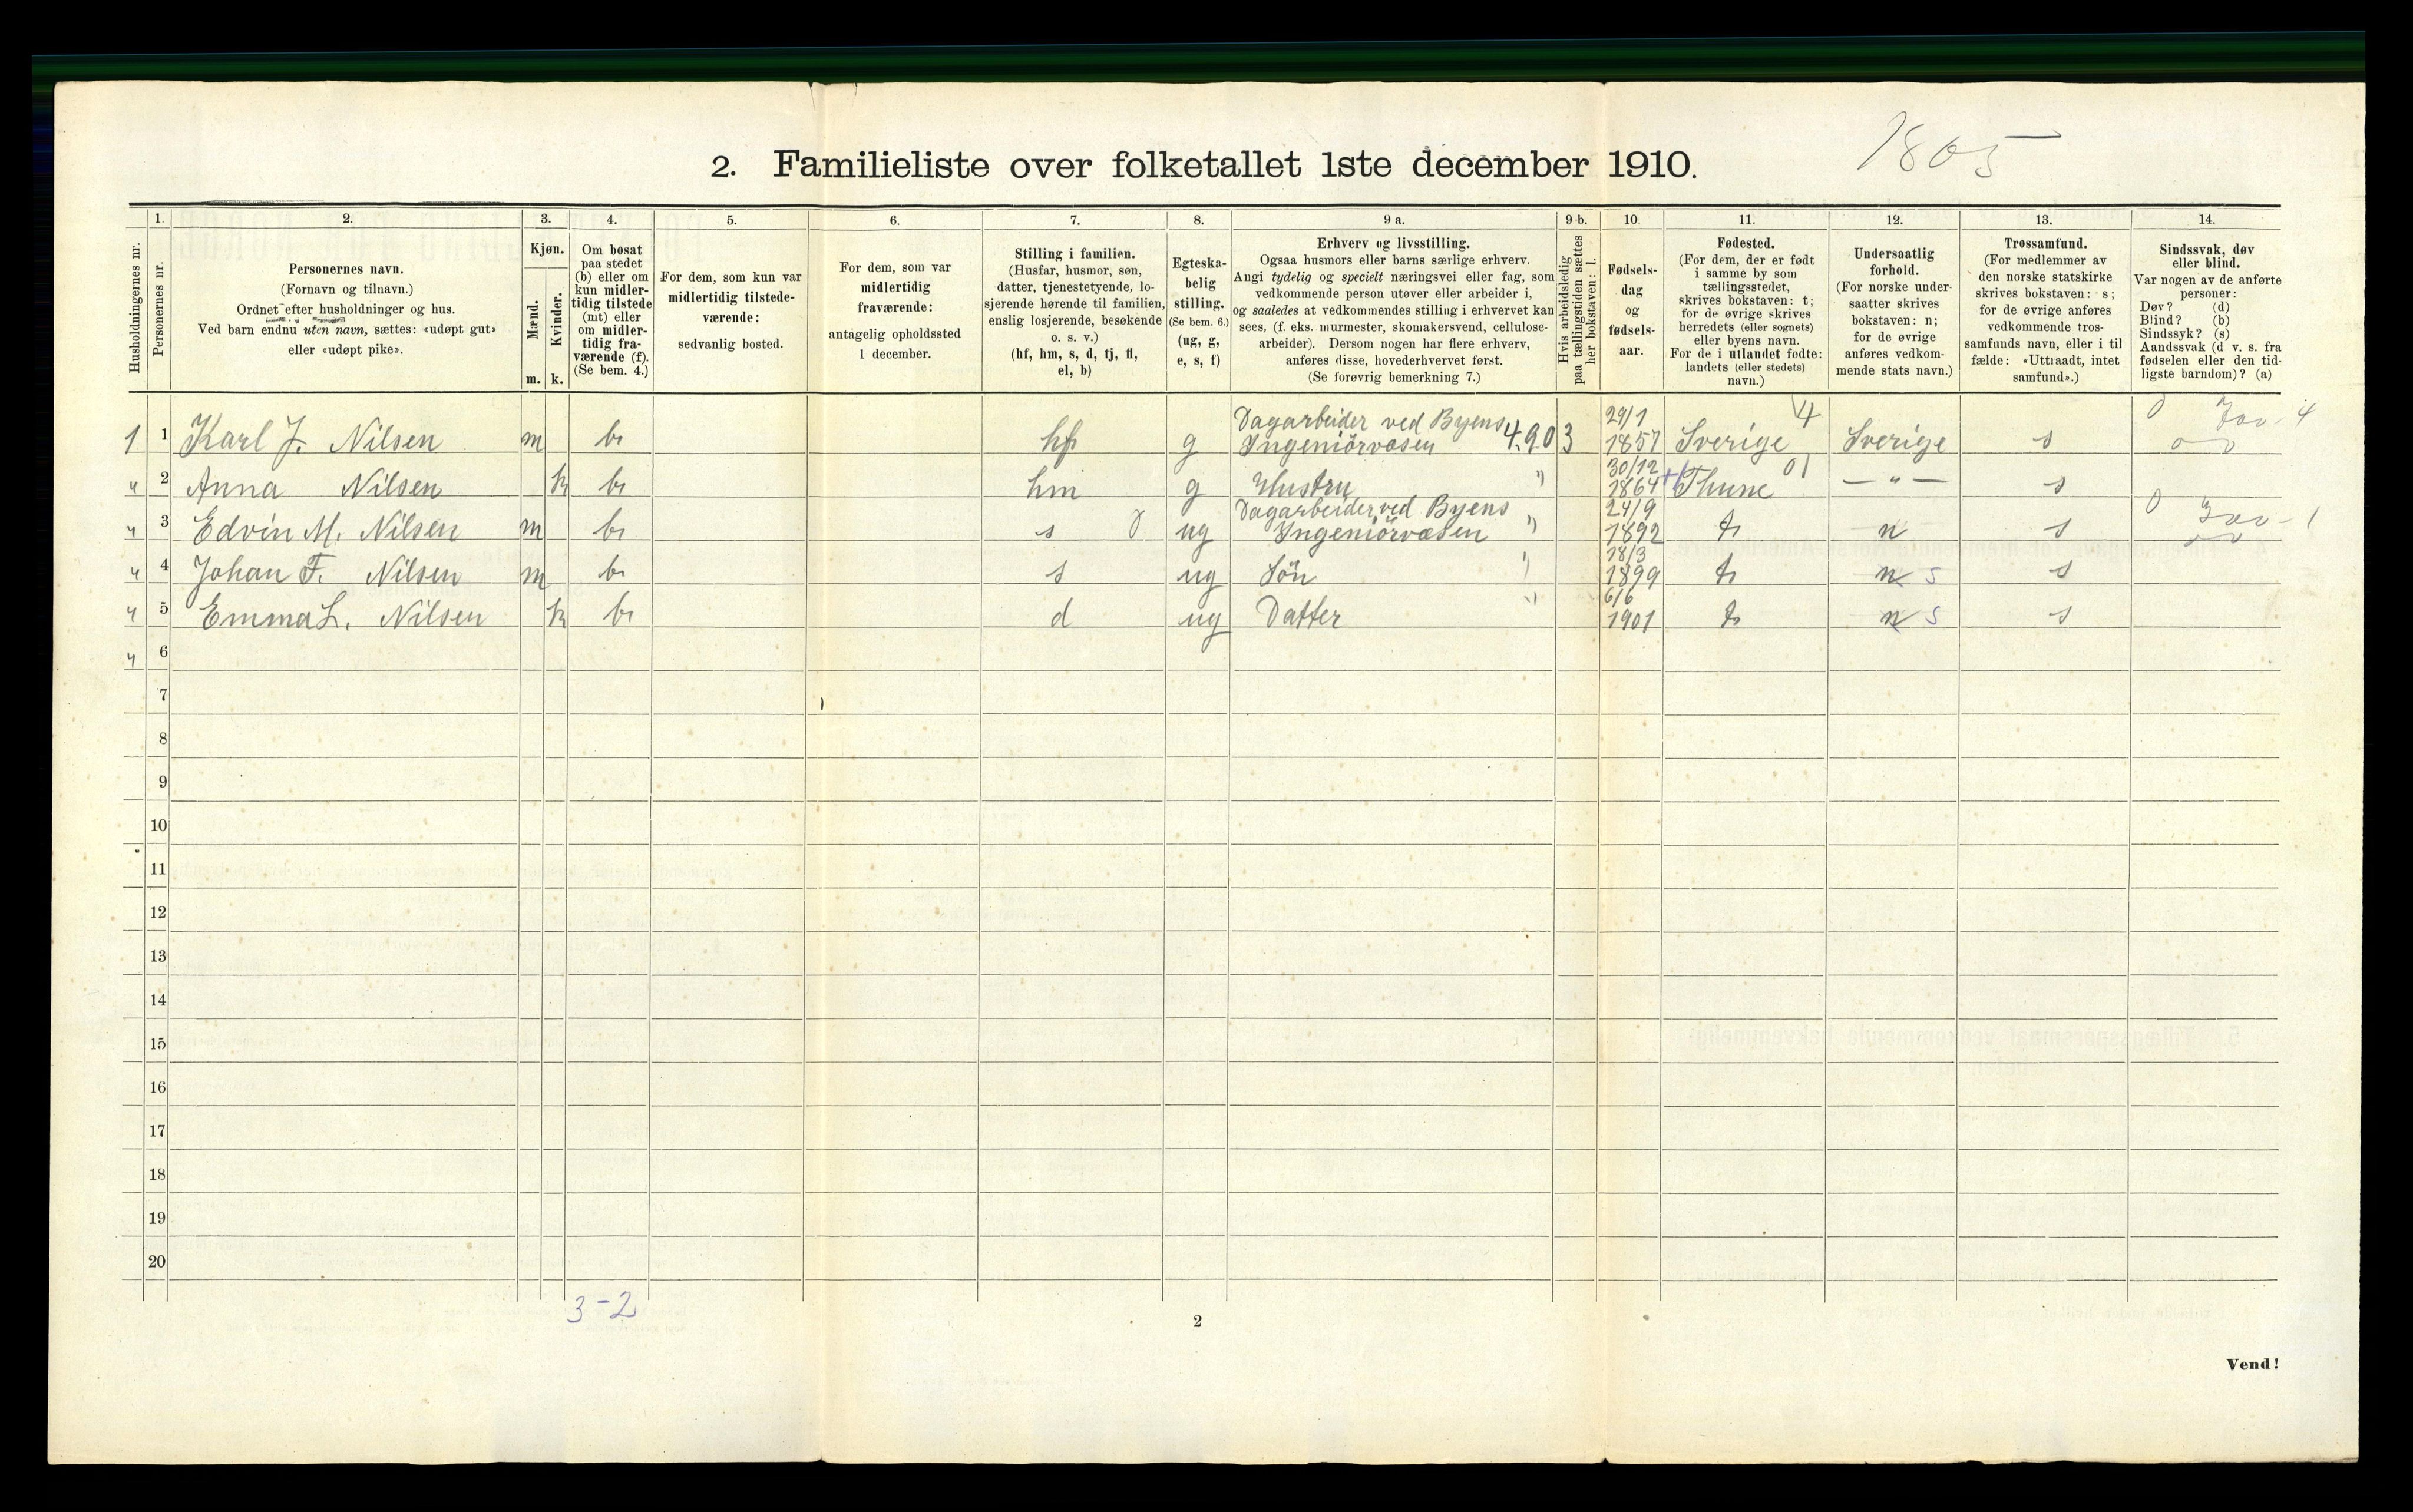 1805
2. Familieliste over folketallet 1ste december 1910.
1. 2. 3. 4. 5. 6. 7. 8. 9 a. 9 b. 10. 11. 12. 13. 14.
Husholdningernes nr.
Personernes nr.
Personernes navn.
(Fornavn og tilnavn.)
Ordnet efter husholdninger og hus.
Ved barn endnu uten navn, sættes: «udøpt gut»
eller «udøpt pike».
Kjøn.
Mænd.
Kvinder.
m. k.
Om bosat
paa stedet
(b) eller om
kun midler-
tidig tilstede
(mt) eller
om midler-
tidig fra-
værende (f).
(Se bem. 4.)
For dem, som kun var
midlertidig tilstede-
værende:
sedvanlig bosted.
For dem, som var
midlertidig
fraværende:
antagelig opholdssted
1 december.
Stilling i familien.
(Husfar, husmor, søn,
datter, tjenestetyende, lo-
sjerende hørende til familien,
enslig losjerende, besøkende
o. s. v.)
(hf, hm, s, d, tj, fl,
el, b)
Egteska-
belig
stilling.
(Se bem. 6.)
(ug, g,
e, s, f)
Erhverv og livsstilling.
Ogsaa husmors eller barns særlige erhverv.
Angi tydelig og specielt næringsvei eller fag, som
vedkommende person utøver eller arbeider i,
og saaledes at vedkommendes stilling i erhvervet kan
sees, (f. eks. murmester, skomakersvend, cellulose-
arbeider). Dersom nogen har flere erhverv,
anføres disse, hovederhvervet først.
(Se forøvrig bemerkning 7.)
Hvis arbeidsledig
paa tællingstiden sættes
her bokstaven: l.
Fødsels-
dag
og
fødsels-
aar.
Fødested.
(For dem, der er født
i samme by som
tællingsstedet,
skrives bokstaven: t;
for de øvrige skrives
herredets (eller sognets)
eller byens navn.
For de i utlandet fødte:
landets (eller stedets)
navn.)
Undersaatlig
forhold.
(For norske under-
saatter skrives
bokstaven: n;
for de øvrige
anføres vedkom-
mende stats navn.)
Trossamfund.
(For medlemmer av
den norske statskirke
skrives bokstaven: s;
for de øvrige anføres
vedkommende tros-
samfunds navn, eller i til
fælde: «Uttraadt, intet
samfund».)
Sindssvak, døv
eller blind.
Var nogen av de anførte
personer:
Døv? (d)
Blind? (b)
Sindssyk? (s)
Aandssvak (d v. s. fra
fødselen eller den tid-
ligste barndom)? (a)
Dagarbeider ved Byens 29/1 4
1 1 Karl J. Nilsen m b hf g Ingeniörvæsen 4.90 3 1857 Sverige Sverige s
30/12 01
" 2 Anna Nilsen k b hm g Hustru " 1864 Thune — " — s
Dagarbeider ved Byens 24/9
" 3 Edvin M. Nilsen m b s 0 ug Ingeniörvæsen " 1892 t n s
18/3
" 4 Johan F. Nilsen m b s ug Sön " 1899 t n s s
6/6
" 5 Emma L. Nilsen k b d ug Datter " 1901 t n s s
" 6
7
8
9
10
11
12
13
14
15
16
17
18
19
20
3-2
2
Vend!